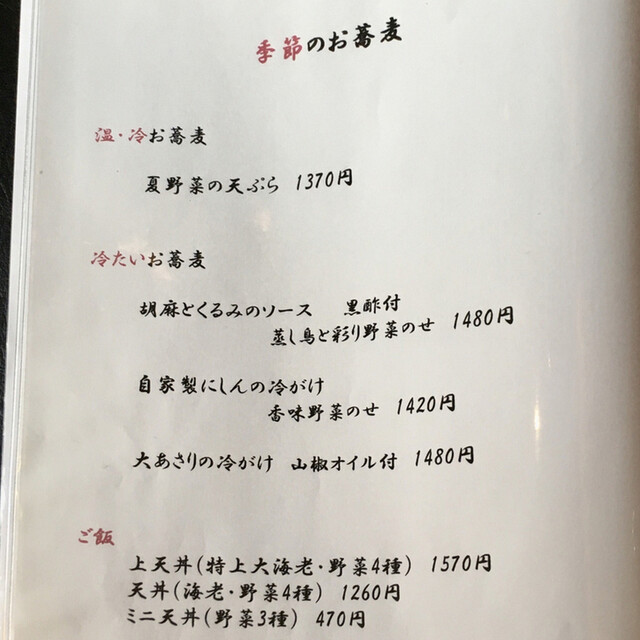 季節のお蕎麦
温・冷お蕎麦
夏野菜の天ぷら 1370円
冷たいお蕎麦
胡麻とくるみのソース 黒酢付
蒸し鳥と彩り野菜のせ 1480円
自家製にしんの冷がけ
香味野菜のせ 1420円
大あさりの冷がけ 山椒オイル付 1480円
ご飯
上天丼(特上大海老・野菜4種) 1570円
天丼(海老・野菜4種) 1260円
ミニ天丼(野菜3種) 470円